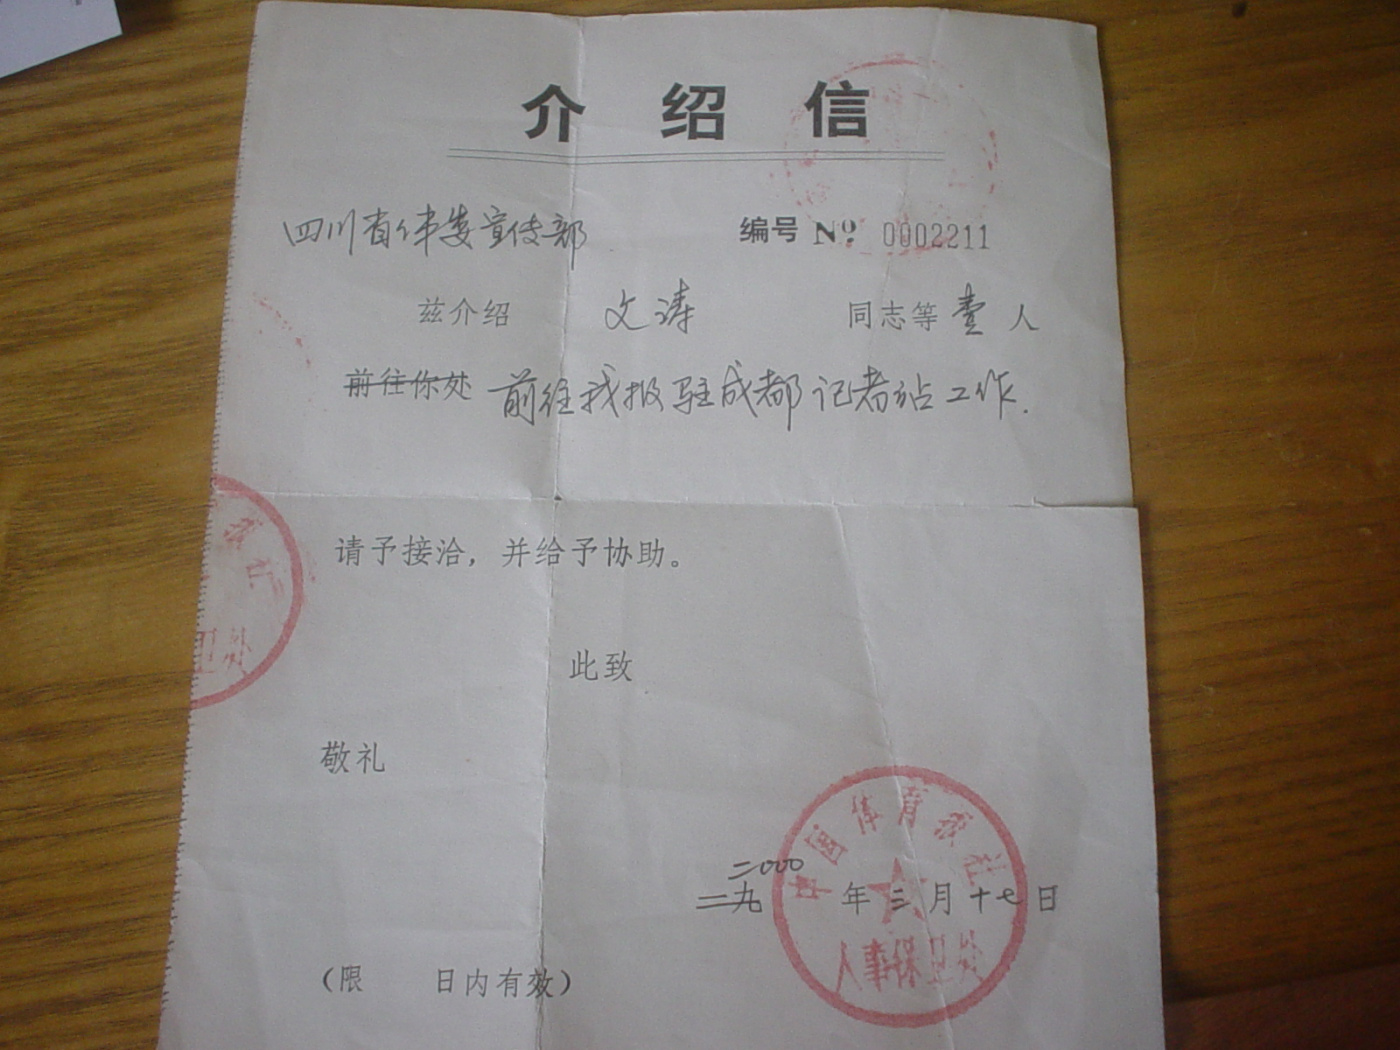 介绍信
四川省体委宣传部
编号 Nº 0002211
兹介绍 文涛 同志等 壹 人
前往你处 前往我报驻成都记者站工作.
请予接洽，并给予协助。
此致
敬礼
二000
一九 年 三 月 十七 日
（限 日内有效）
中国体育报社
人事保卫处
报社
卫处